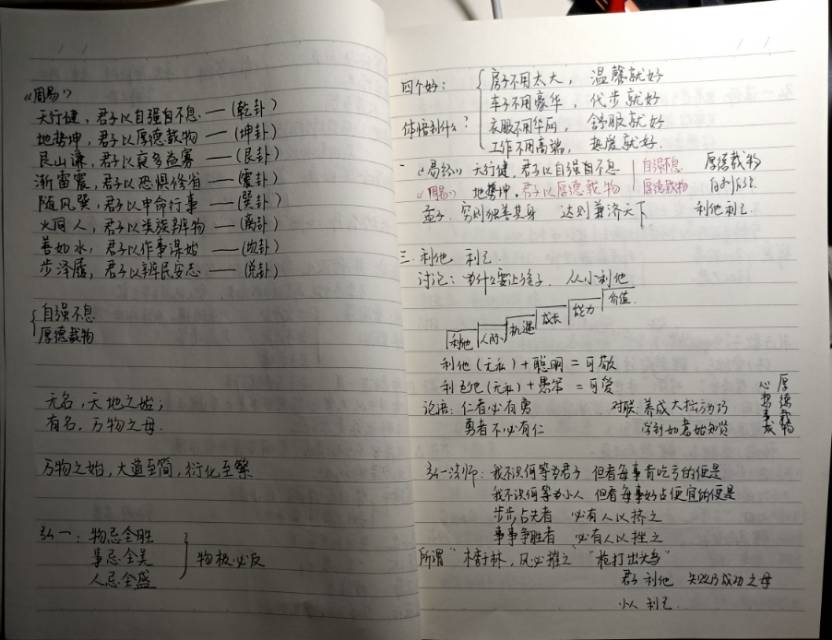 《周易》
天行健，君子以自强自不息 —— (乾卦)
地势坤，君子以厚德载物 —— (坤卦)
艮山谦，君子以裒多益寡 —— (艮卦)
渐雷震，君子以恐惧修省 —— (震卦)
随风巽，君子以申命行事 —— (巽卦)
火同人，君子以类族辨物 —— (离卦)
善如水，君子以作事谋始 —— (坎卦)
步泽履，君子以辨民安志 —— (兑卦)
自强不息
厚德载物
无名，天地之始；
有名，万物之母．
万物之始，大道至简，衍化至繁
弘一：物忌全胜
事忌全美
人忌全盛
物极必反
四个好：
房子不用太大，温馨就好
车子不用豪华，代步就好
体悟到什么？
衣服不用华丽，舒服就好
工作不用高端，热爱就好．
一《易经》天行健，君子以自强自不息 自强不息 厚德载物
《周易》地势坤，君子以厚德载物 厚德载物 自利利他
孟子．穷则独善其身 达则兼济天下 利他利己
三．利他 利己
讨论：为什么要让孩子．从小利他
利他 人脉 机遇 成长 能力 价值
利他(无私)+聪明＝可敬
利他(无私)+愚笨＝可爱
论语：仁者必有勇 对联：养成大拙方为巧
勇者不必有仁 学到如愚始知贤
厚德载物
心想事成
弘一法师：我不识何等为君子 但看每事肯吃亏的便是
我不识何等为小人 但看每事好占便宜的便是
步步占先者 必有人以挤之
事事争胜者 必有人以挫之
所谓"木秀于林，风必摧之" "枪打出头鸟"
君子利他 失败乃成功之母
小人 利己．